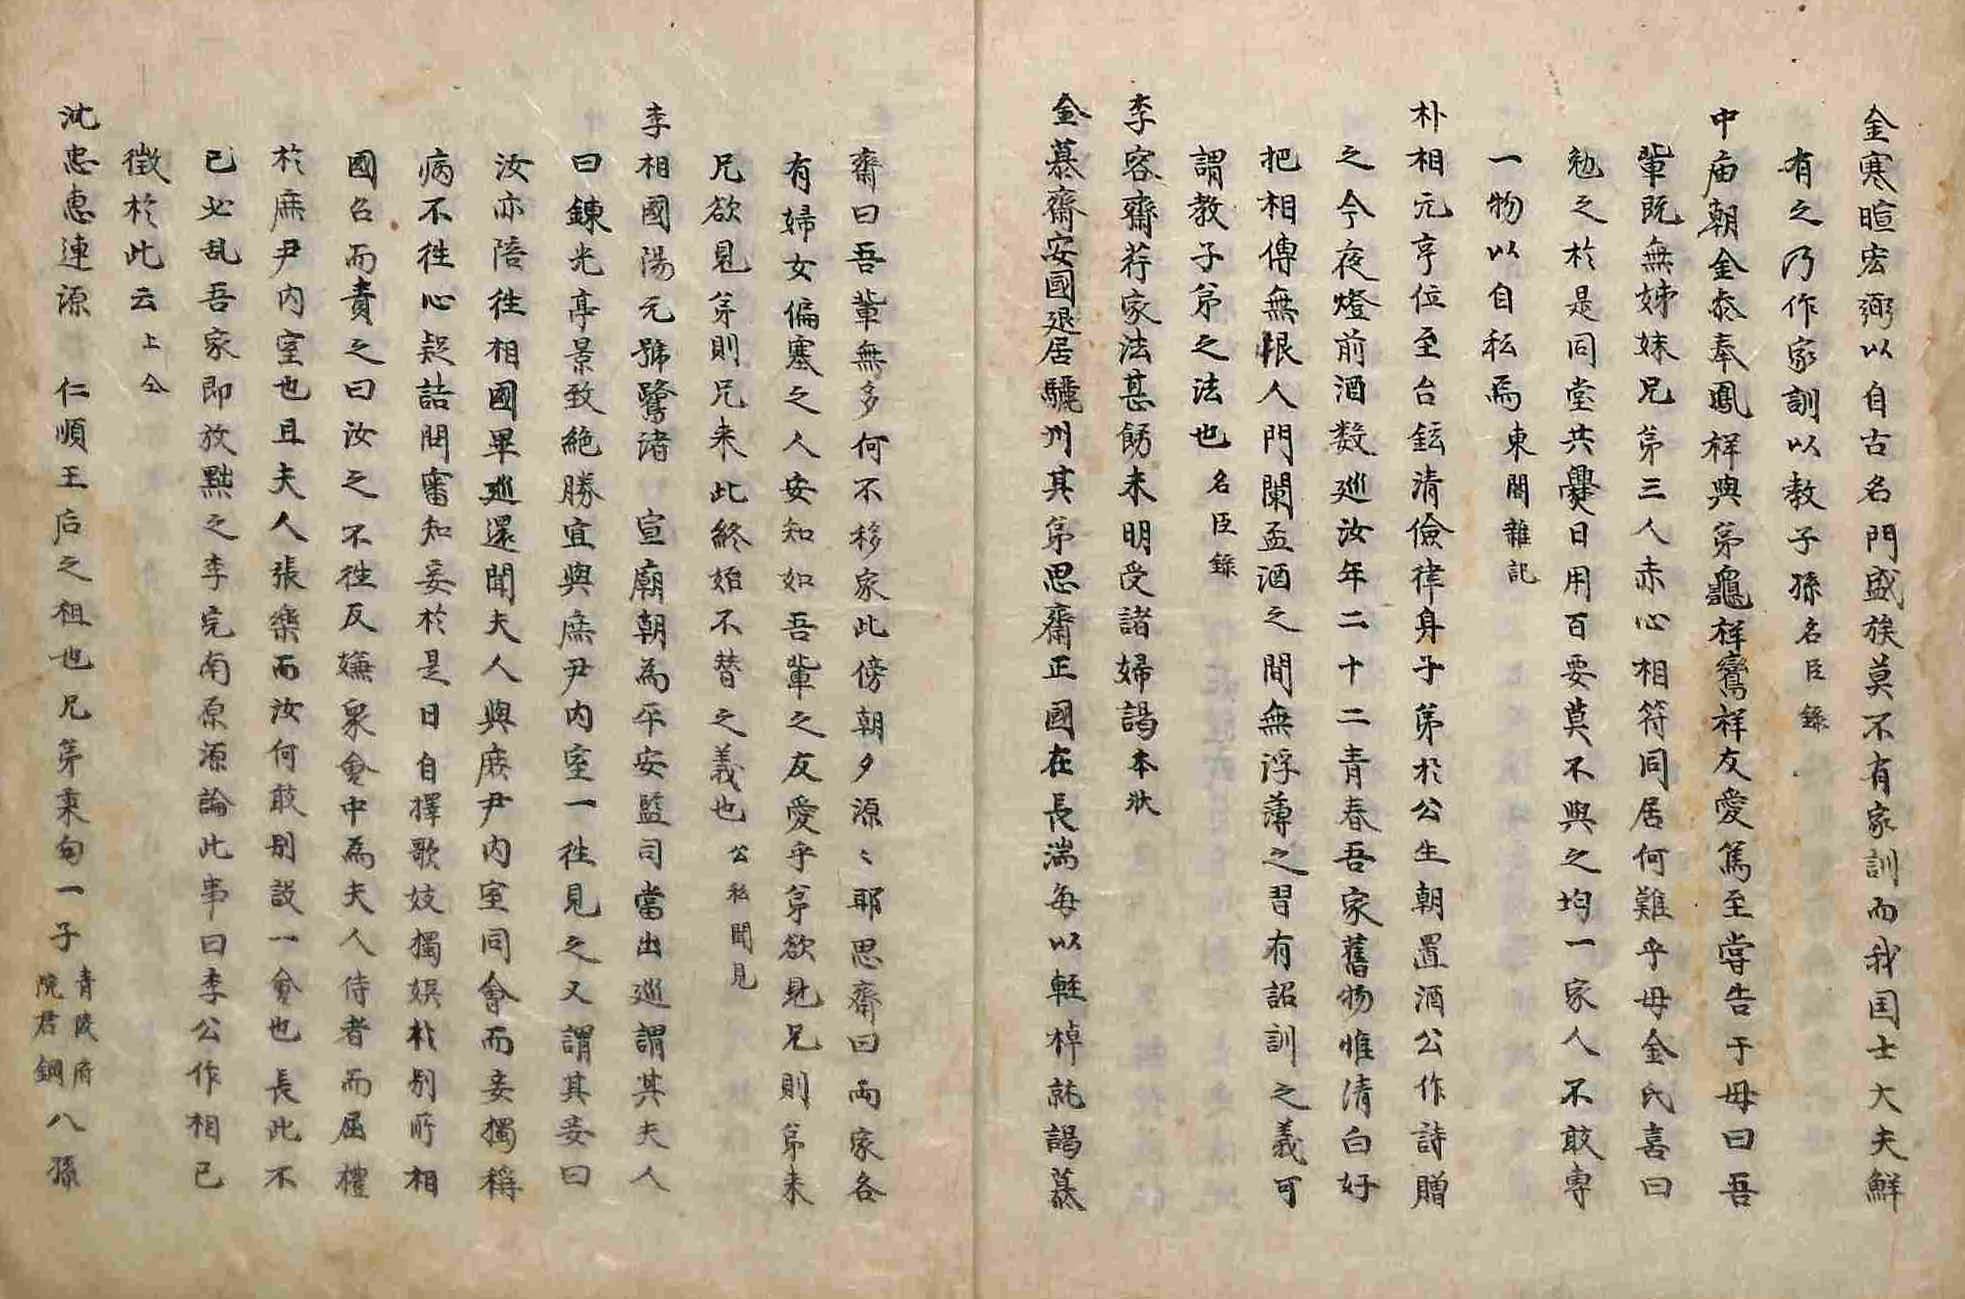 金寒暄宏弼以自古名門盛族莫不有家訓而我国士大夫鮮
有之乃作家訓以教子孫名臣錄
中庙朝金泰奉鳳祥與弟龜祥鸞祥友愛篤至嘗告于母曰吾
輩既無姊妹兄弟三人赤心相符同居何難乎母金氏喜曰
勉之於是同堂共爨日用百要莫不與之均一家人不敢專
一物以自私焉東閣雜記
朴相元亨位至台鉉清儉律身子弟於公生朝置酒公作詩贈
之今夜燈前酒数巡汝年二十二青春吾家舊物惟清白好
把相傳無限人門闌盃酒之間無浮薄之習有詔訓之義可
謂教子弟之法也名臣錄
李容齋荇家法甚飭未明受諸婦謁本狀
金慕齋安國退居驪州其弟思齋正國在長湍每以輕棹訪謁慕
齋曰吾輩無多何不移家此傍朝夕源〻耶思齋曰両家各
有婦女偏塞之人安知如吾輩之友愛乎弟欲見兄則弟来
兄欲見弟則兄来此終始不替之義也公私聞見
李相國陽元號鷺渚 宣廟朝為平安監司當出巡謂其夫人
曰鍊光亭景致絶勝宜與庶尹内室一徃見之又謂其妾曰
汝亦陪徃相國畢巡還聞夫人與庶尹内室同會而妾獨稱
病不徃心疑詰問審知妾於是日自擇歌妓獨娛於別所相
國召而責之曰汝之不徃反嫌衆會中為夫人侍者而屈禮
於庶尹内室也且夫人張樂而汝何敢別設一會也長此不
已必乱吾家即放黜之李完南厚源論此事曰李公作相已
徵於此云上仝
沈思惠連源 仁順王后之祖也兄弟秉匈一子青陵府院君鋼八孫